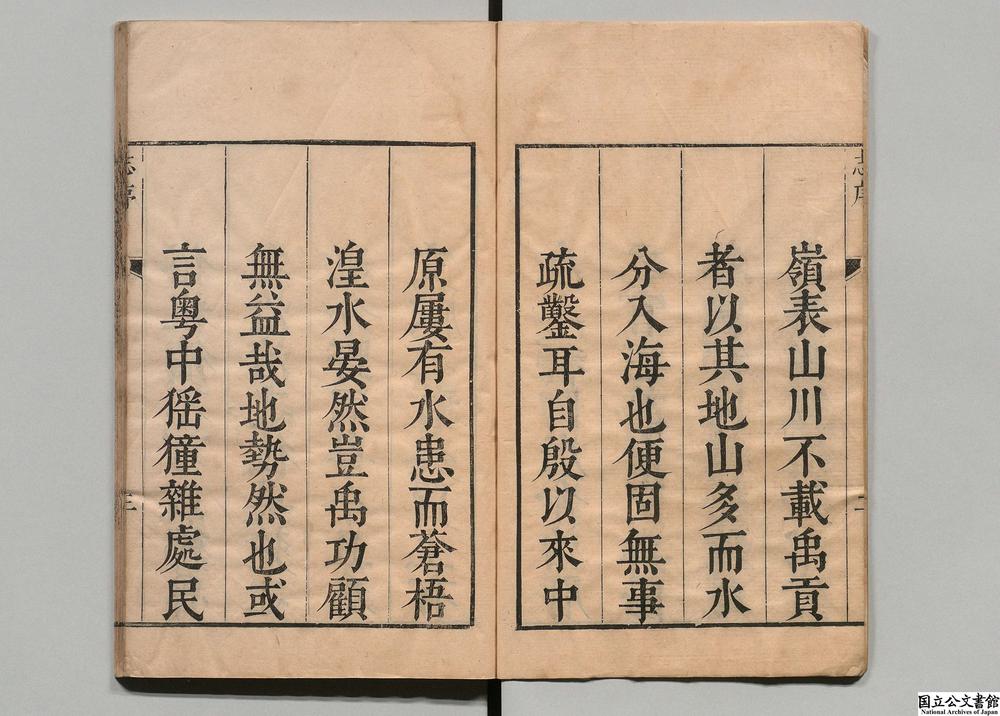 志序
二
嶺表山川不載禹貢
者以其地山多而水
分入海也便固無事
疏鑿耳自殷以來中
原屢有水患而蒼梧
湟水晏然豈禹功顧
無益哉地勢然也或
言粵中猺獞雜處民
志序
三
国立公文書館
National Archives of Japan